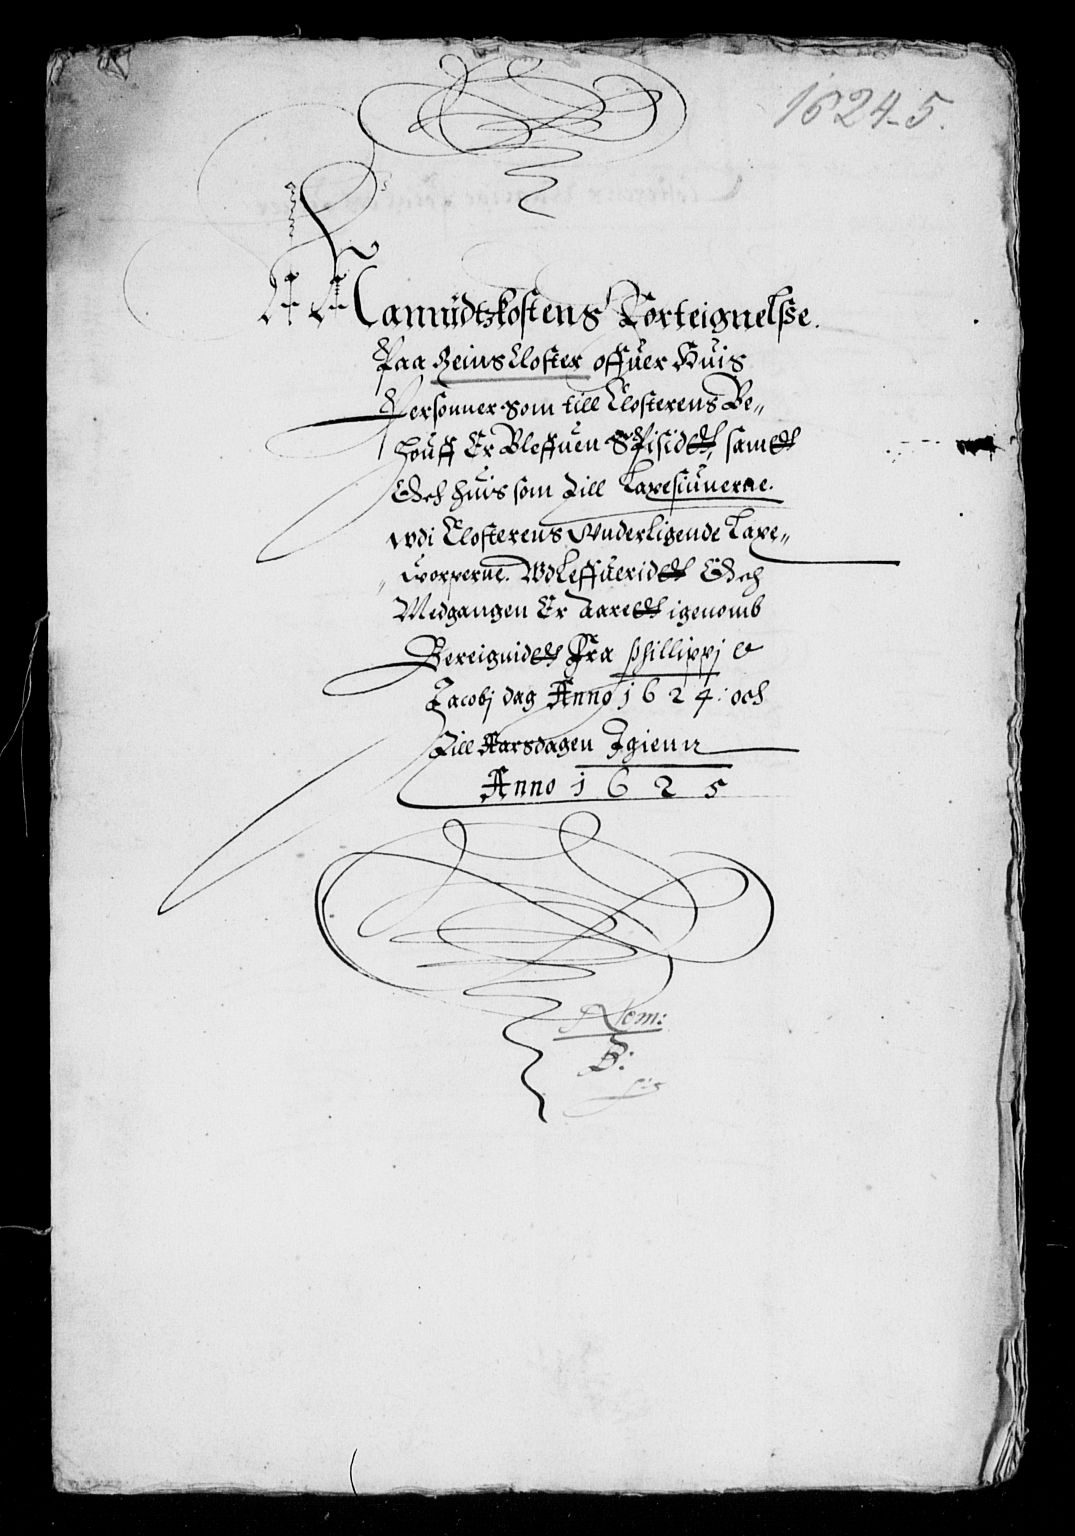 1624-5.
Maanidtzkostens Forteignelsse.
Paa Reins Closter offuer Huis
Personner som till Closterens Be„
houff Er Bleffuen Spisidtt, samdtt
Och huis som Till Laxesiunerne.
wdi Closterens Wnderligende Laxe„
„worperne. Wdleffueridtt Och
Medgangen Er Aaredtt igenomb
Bereignidtt Fra Phillippj &
Jacobj dag Anno 1624: och
Till Aarsdagen Igienn
Anno 1625
B: